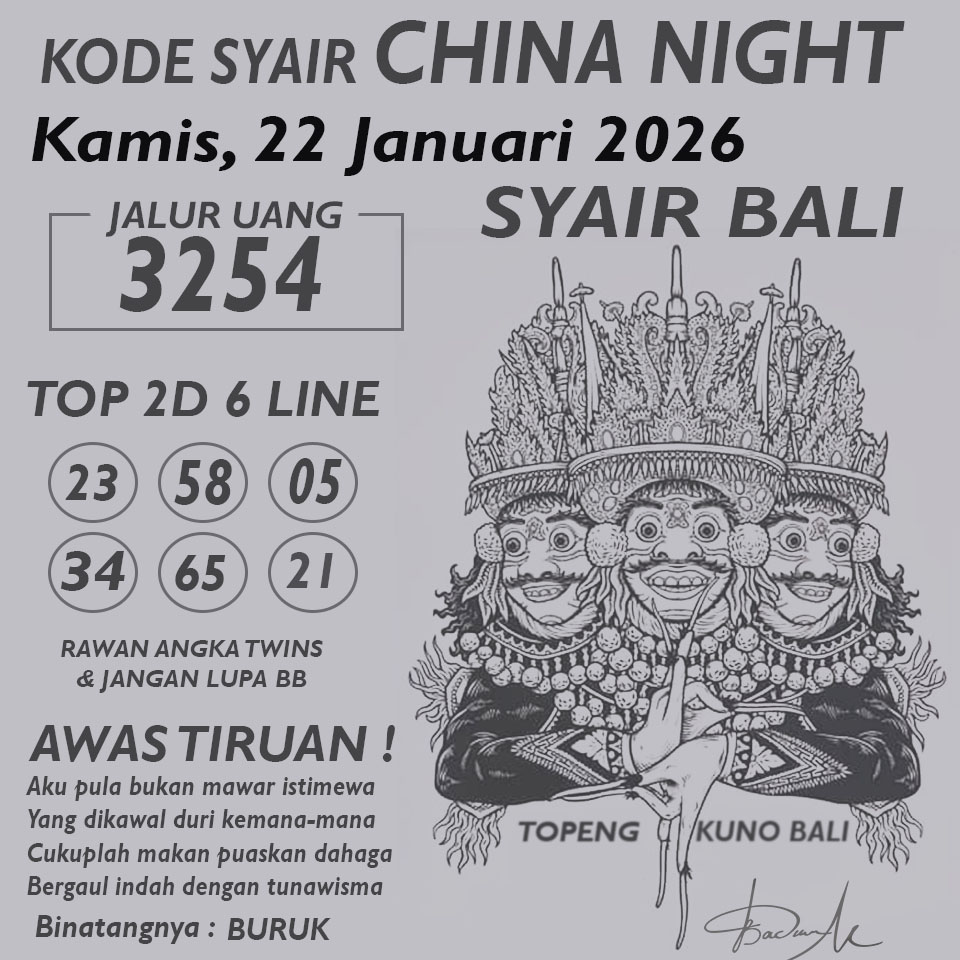 KODE SYAIR CHINA NIGHT
Kamis, 22 Januari 2026
SYAIR BALI
JALUR UANG
3254
TOP 2D 6 LINE
23 58 05
34 65 21
RAWAN ANGKA TWINS
& JANGAN LUPA BB
AWAS TIRUAN !
Aku pula bukan mawar istimewa
Yang dikawal duri kemana-mana
Cukuplah makan puaskan dahaga
Bergaul indah dengan tunawisma
Binatangnya : BURUK
TOPENG KUNO BALI